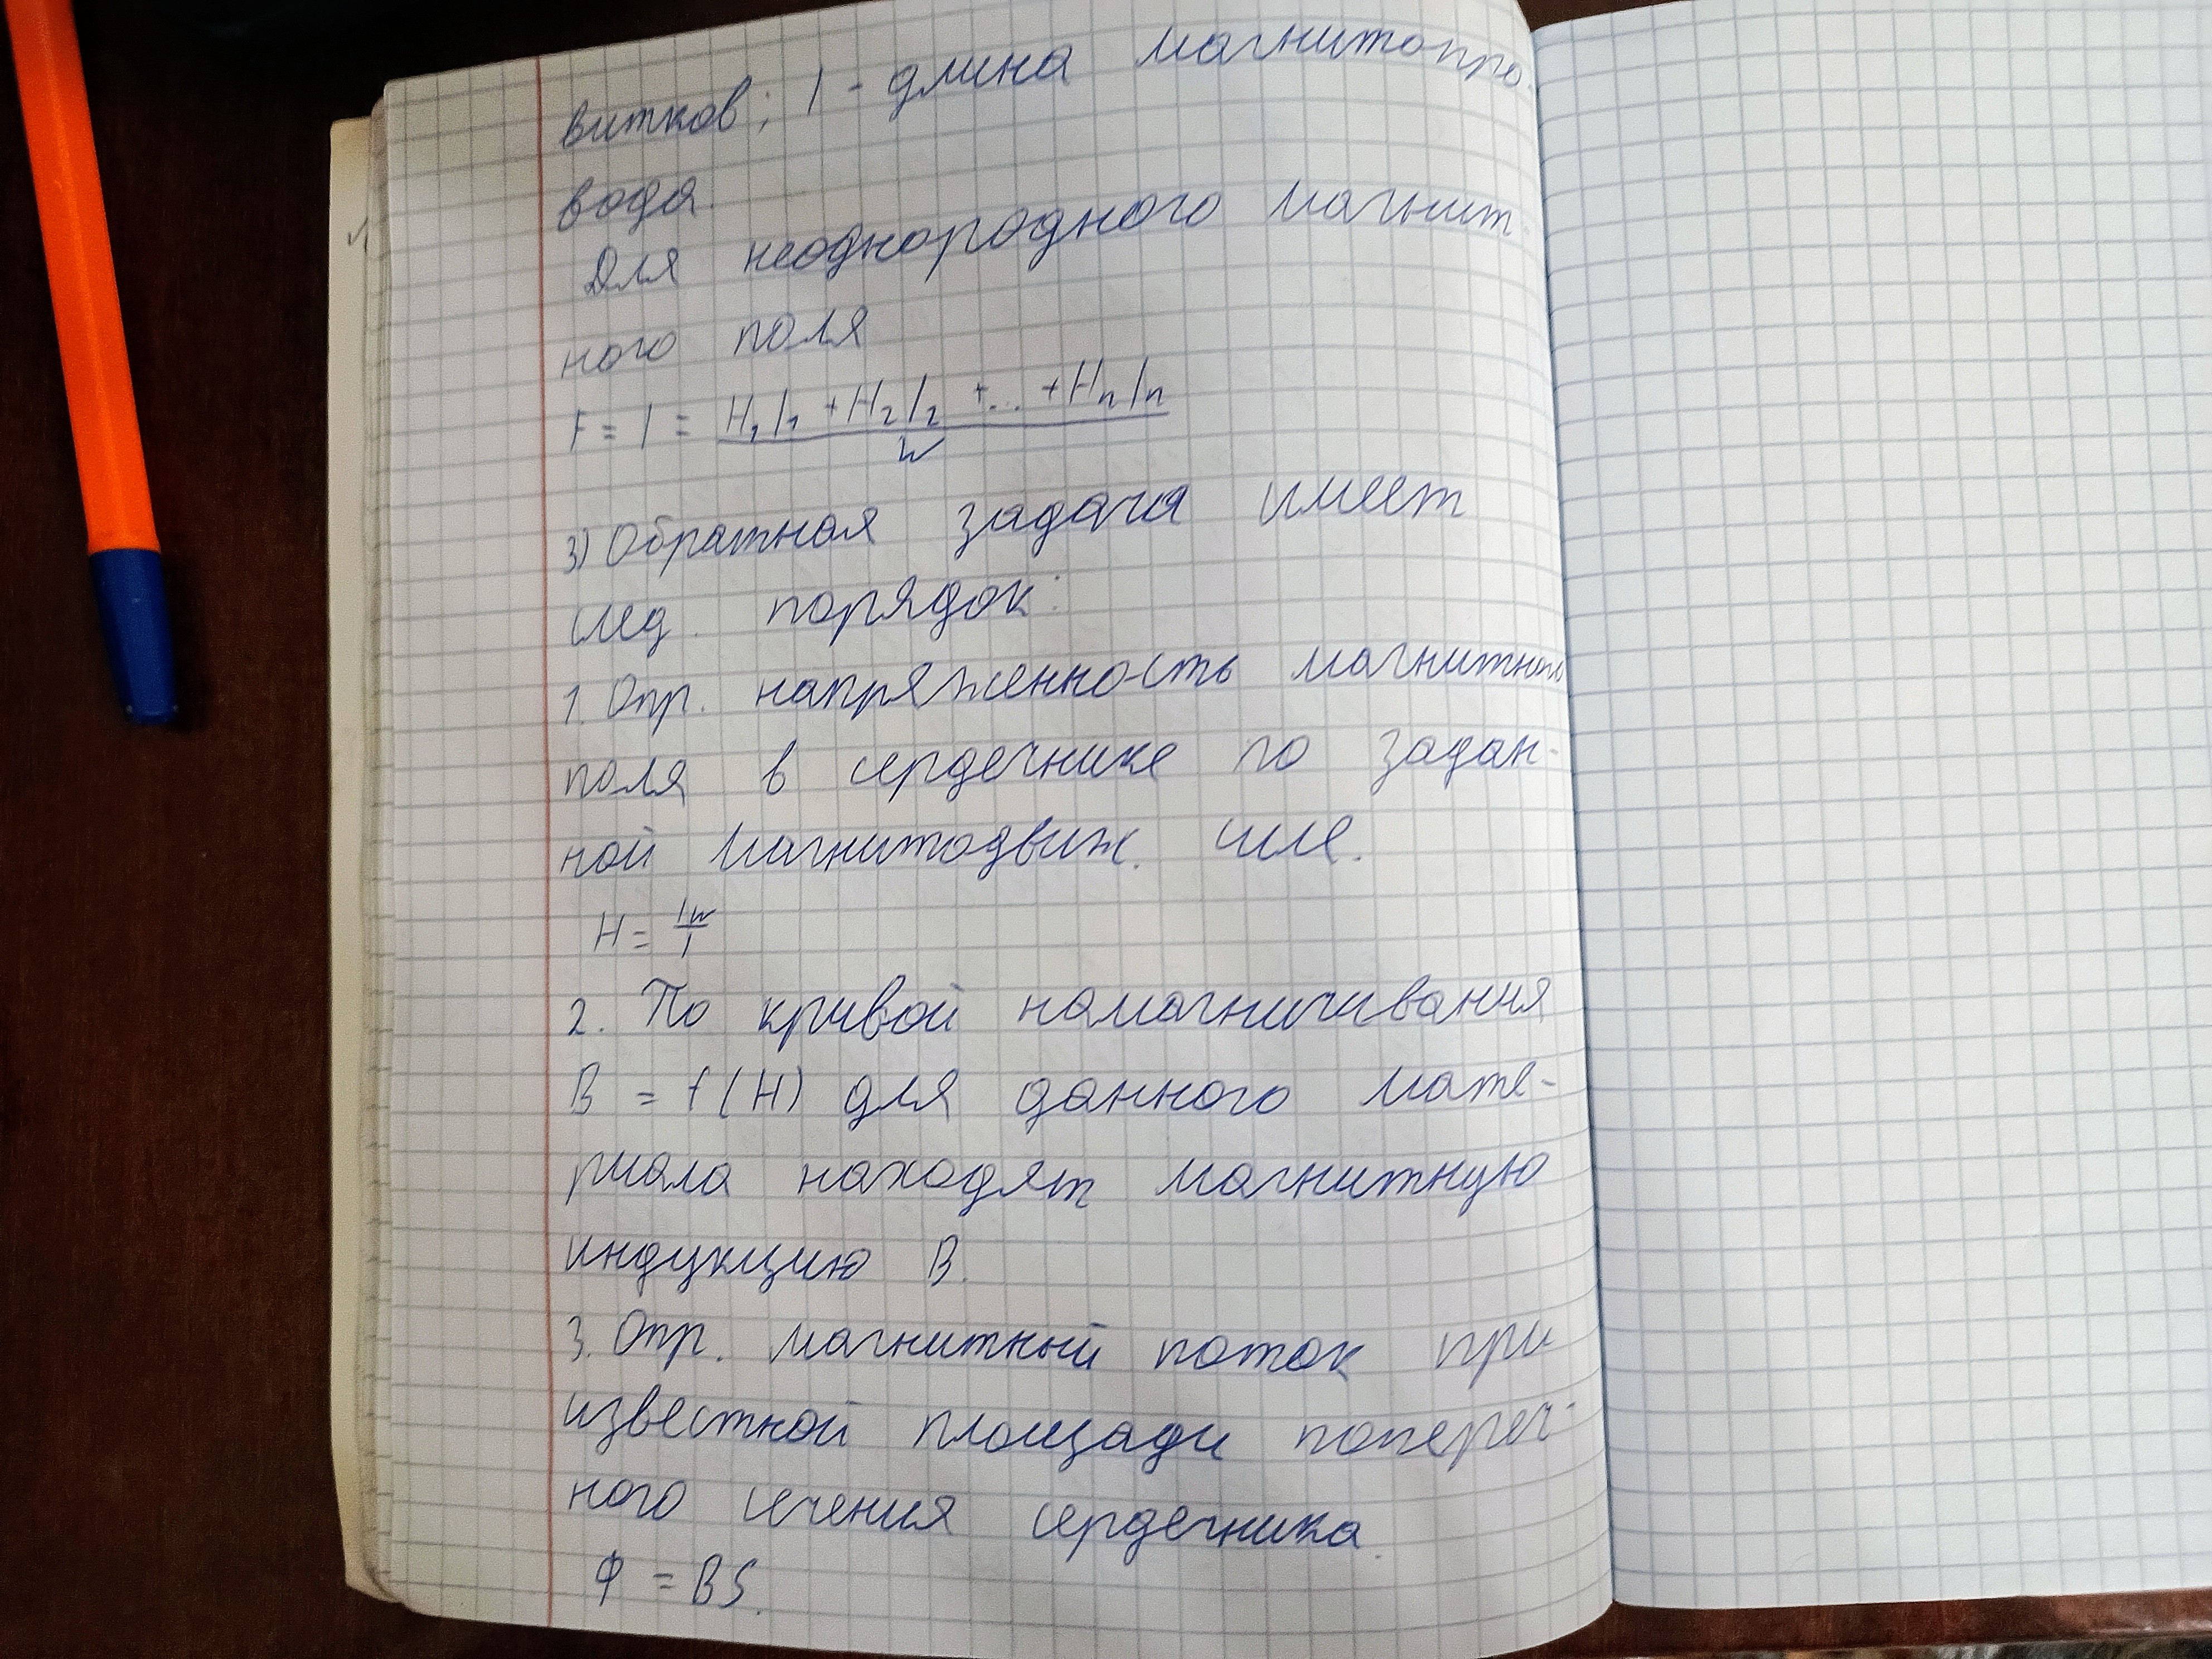 витков; l - длина магнитопро-
вода.
Для неоднородного магнит-
ного поля
F = I = H₁l₁ + H₂l₂ +... + Hₙlₙ
W
3) Обратная задача имеет
след. порядок:
1. Опр. напряженность магнитного
поля в сердечнике по задан-
ной магнитодвиж. силе.
H = Iw/l
2. По кривой намагничивания
B = f(H) для данного мате-
риала находят магнитную
индукцию B.
3. Опр. магнитный поток при
известной площади попереч-
ного сечения сердечника.
Ф = BS.